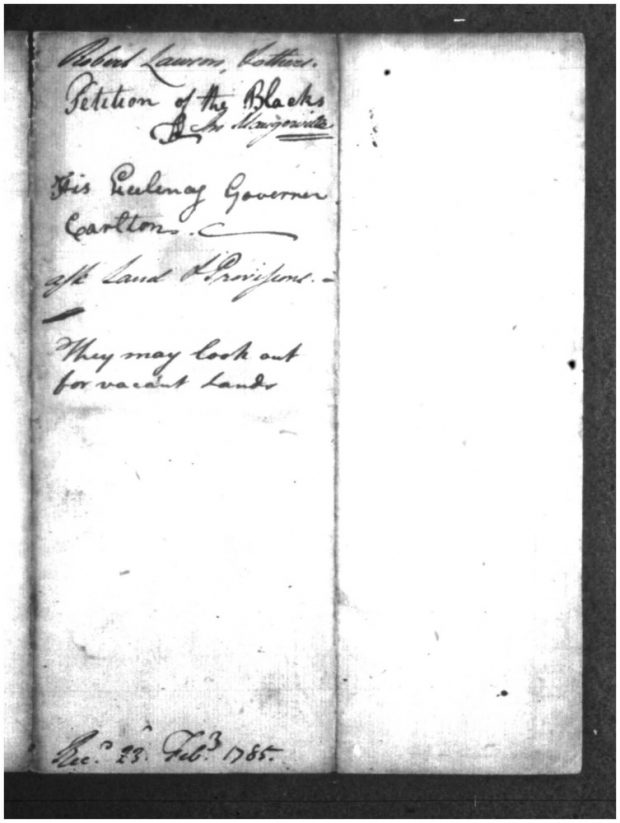 Robert Lawson, & others.
Petition of the Blacks
Maugerville
His Excelency Governer
Carlton.
ask Land & Provisions. -
They may look out
for vacant Lands
Rec.d 23.d Feb.y 1785.